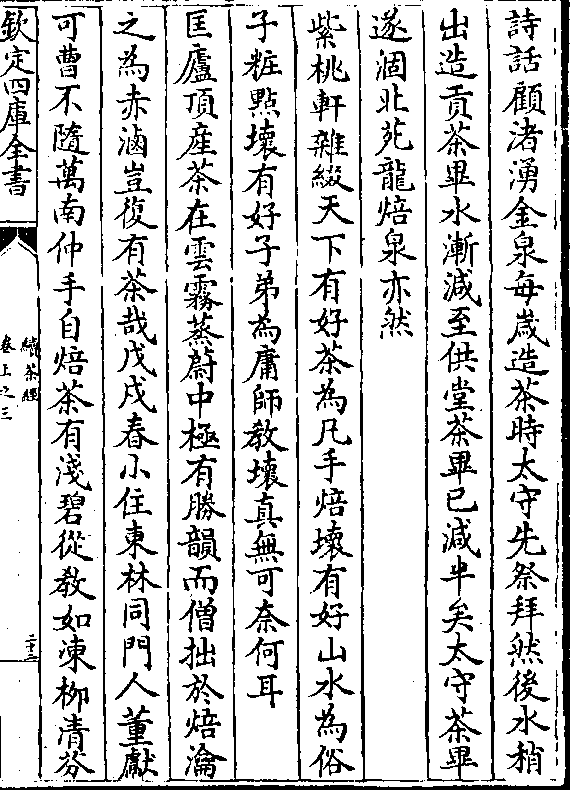 詩話顧渚湧金泉每嵗造茶時太守先祭拜然後水稍
出造貢茶畢水漸減至供堂茶畢已減半矣太守茶畢
遂涸北苑龍焙泉亦然
紫桃軒雜綴天下有好茶為凡手焙壞有好山水為俗
子粧點壞有好子弟為庸師教壞真無可奈何耳
匡廬頂産茶在雲霧蒸蔚中極有勝韻而僧拙於焙瀹
之為赤滷豈復有茶哉戊戌春小住東林同門人董獻
可曹不隨萬南仲手自焙茶有淺碧從教如凍柳清芬
欽定四庫全書
續茶經
卷上之三
二十二